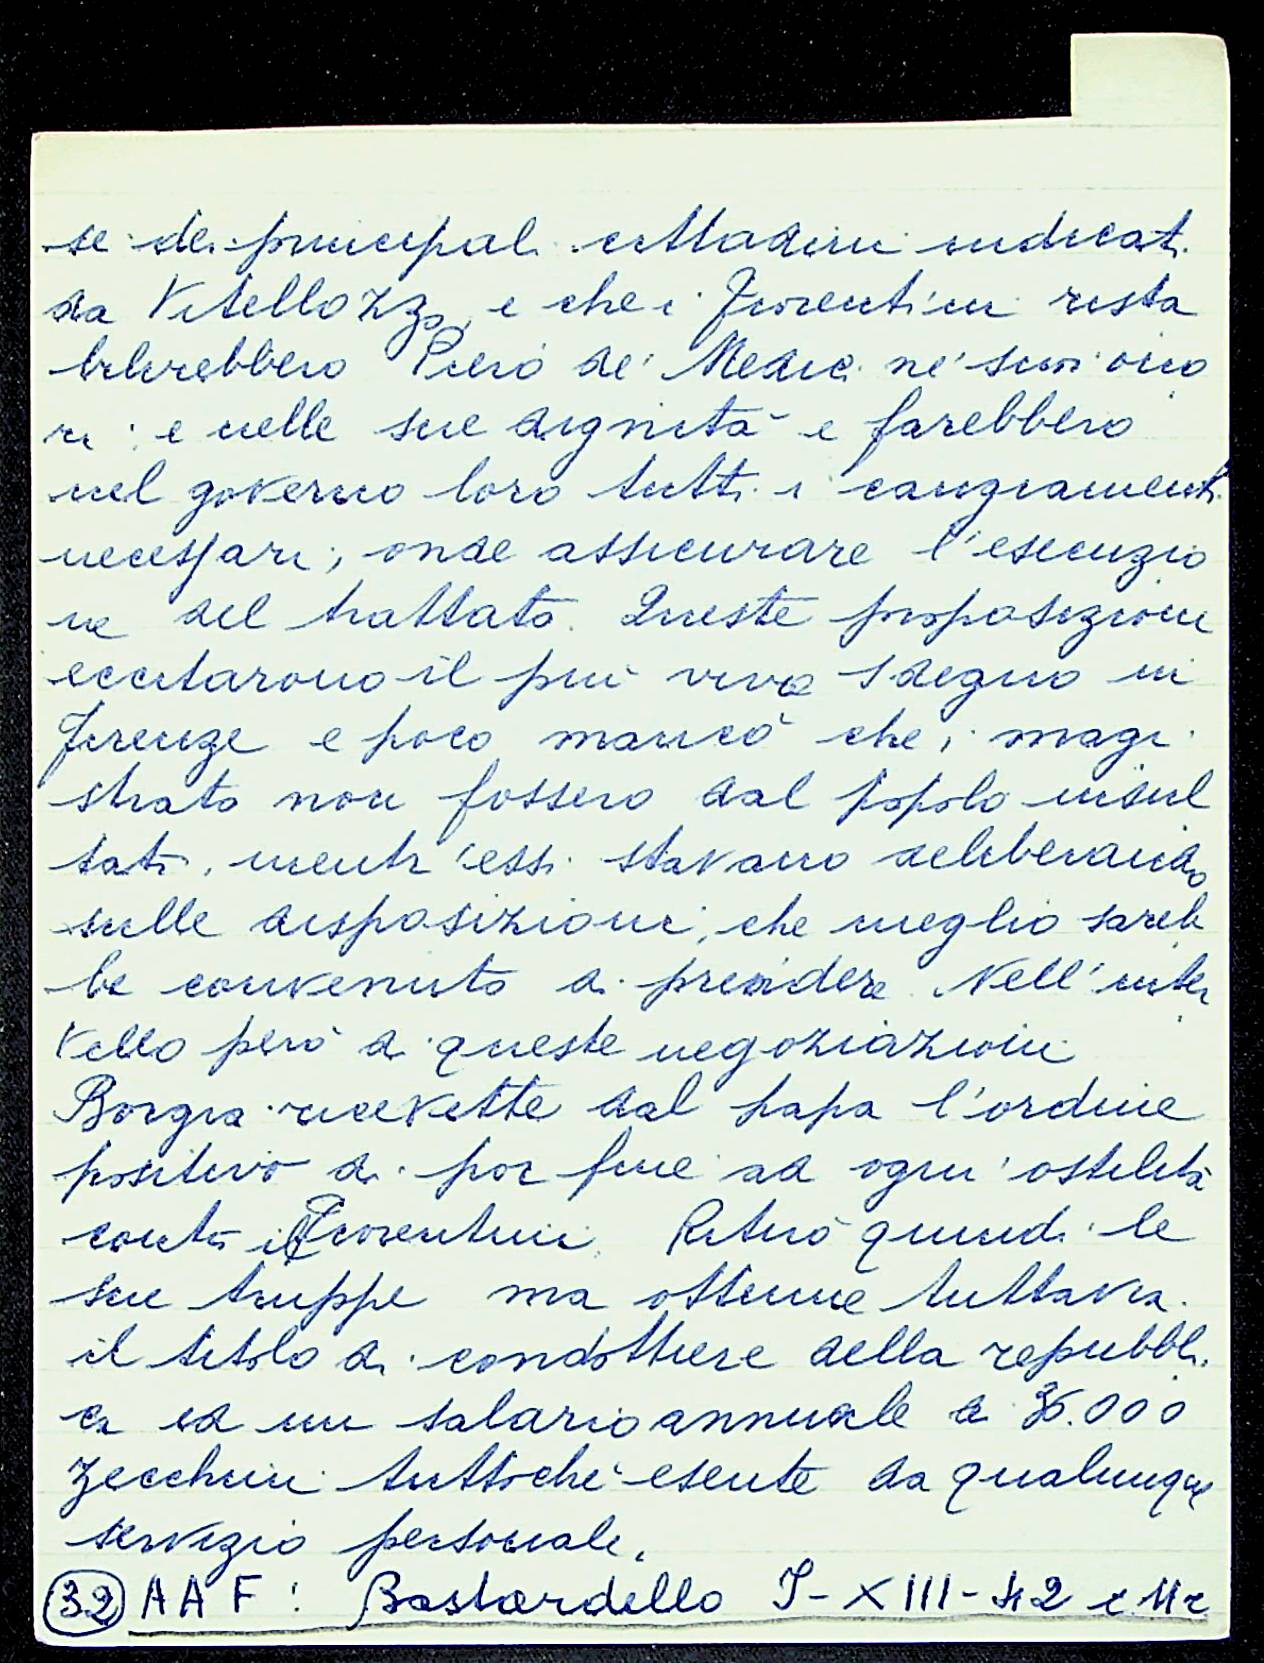 se dei principali cittadini indicati
da Vitellozzo, e che i Fiorentini rista
bilirebbero Piero de' Medici ne' suoi ono
ri e nelle sue dignità e farebbero
nel governo loro tutti i cangiamenti
necessari, onde assicurare l'esecuzio
ne del trattato. Queste proposizioni
eccitarono il più vivo sdegno in
Firenze e poco mancò che i magi
strato non fossero dal popolo insul
tati, mentr'essi stavano deliberando
sulle disposizioni, che meglio sareb
be convenuto di prendere. Nell'inter
vello però di queste negoziazioni
Borgia ricevette dal papa l'ordine
positivo di por fine ad ogni ostilità
contro i Fiorentini. Ritirò quindi le
sue truppe ma ottenne tuttavia
il titolo di condottiere della repubbli
ca ed un salario annuale di 36.000
zecchini tuttochè esente da qualunque
servizio personale.
(32) AAF: Bastardello I-XIII-42 e